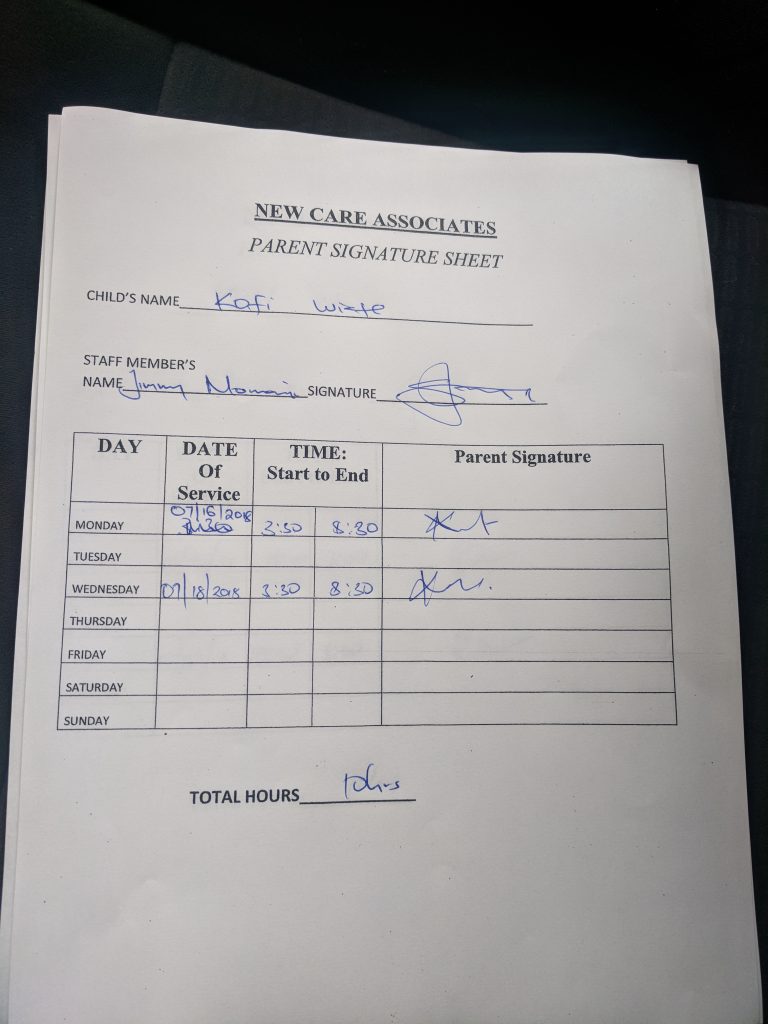 NEW CARE ASSOCIATES
PARENT SIGNATURE SHEET
CHILD'S NAME Kofi Wiafe
STAFF MEMBER'S
NAME Jimmy SIGNATURE
DAY DATE Of Service TIME: Start to End Parent Signature
MONDAY 07/16/2018 3:30 8:30
TUESDAY
WEDNESDAY 07/18/2018 3:30 8:30
THURSDAY
FRIDAY
SATURDAY
SUNDAY
TOTAL HOURS 10hrs